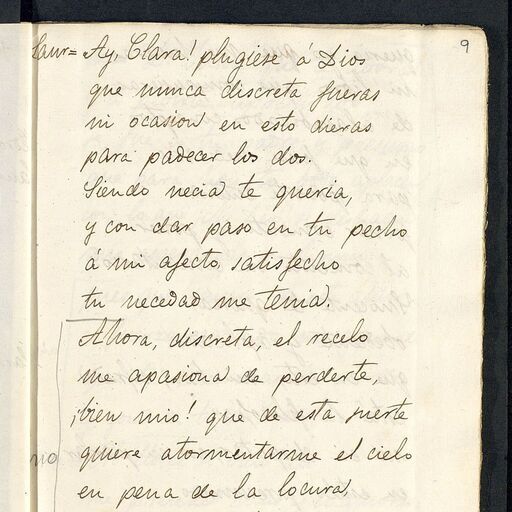 9
Laur= Ay, Clara! plugiese á Dios
que nunca discreta fueras
ni ocasion en esto dieras
para padecer los dos.
Siendo necia te queria,
y con dar paso en tu pecho
á mi afecto, satisfecho
tu necedad me tenia.
Ahora, discreta, el recelo
me apasiona de perderte,
¡bien mio! que de esta suerte
no quiere atormentarme el cielo
en pena de la locura,